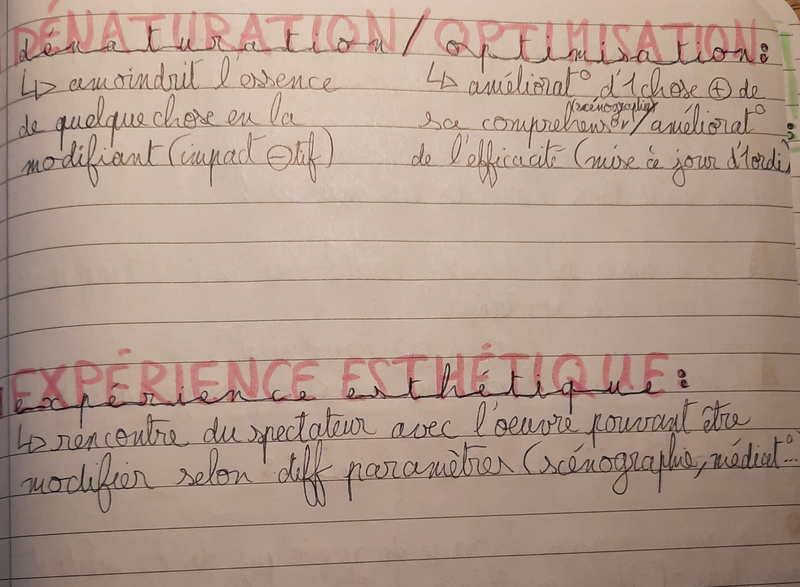 DÉNATURATION/OPTIMISATION:
dénaturation/optimisation:
↳ amoindrit l'essence ↳ améliorat° d'1 chose ⊕ de
(scénographie)
de quelque chose en la sa compréhension/améliorat°
modifiant (impact ⊖tif) de l'efficacité (mise à jour d'1 ordi)
EXPÉRIENCE ESTHÉTIQUE:
expérience esthétique:
↳ rencontre du spectateur avec l'oeuvre pouvant être
modifier selon diff paramètres (scénographie, médiat°...